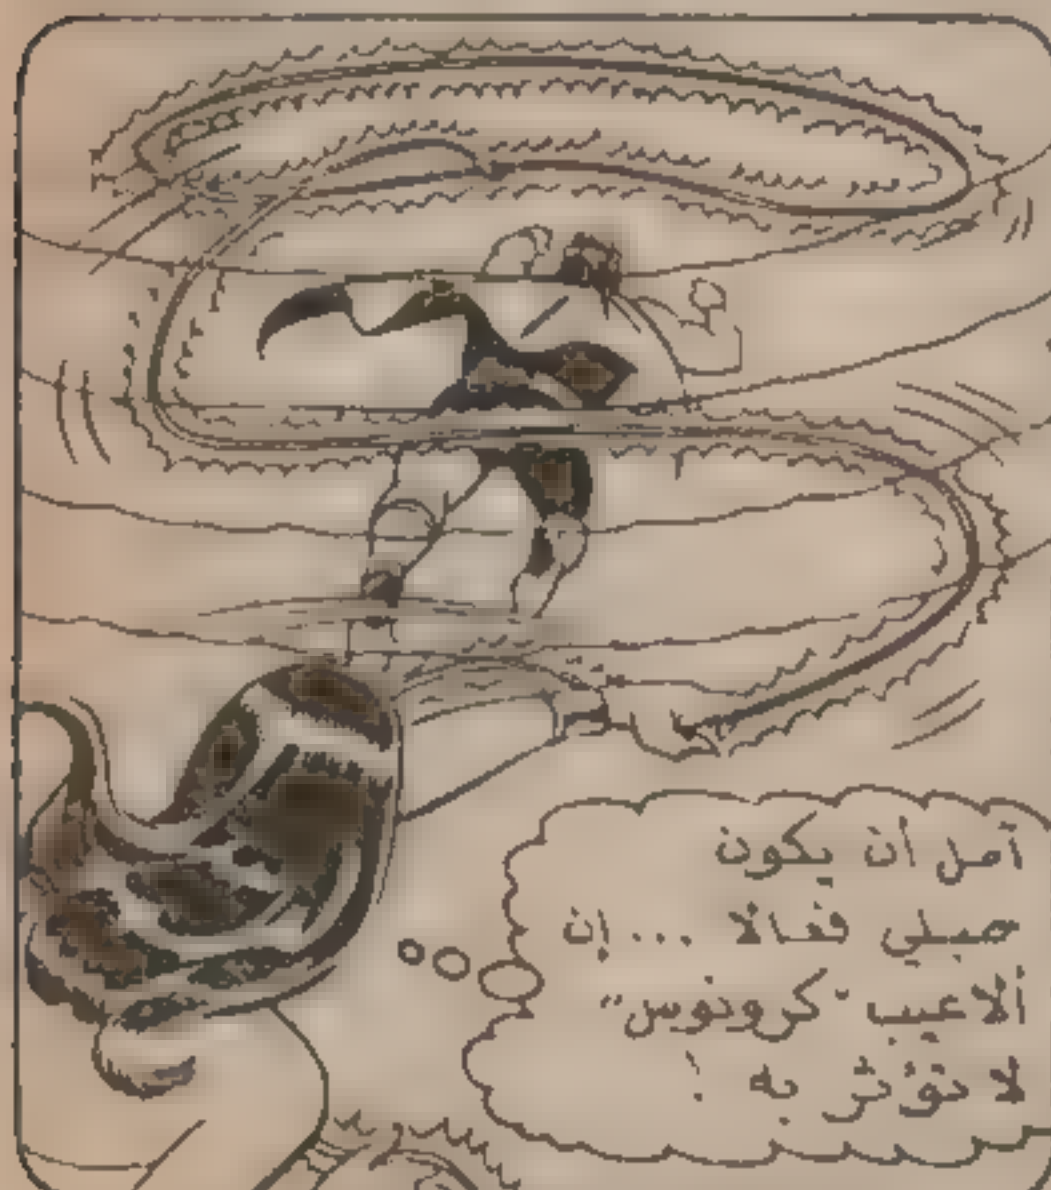 آمل أن يكون
حبلي فعالا ... إن
ألاعيب "كرونوس"
لا تؤثر به !